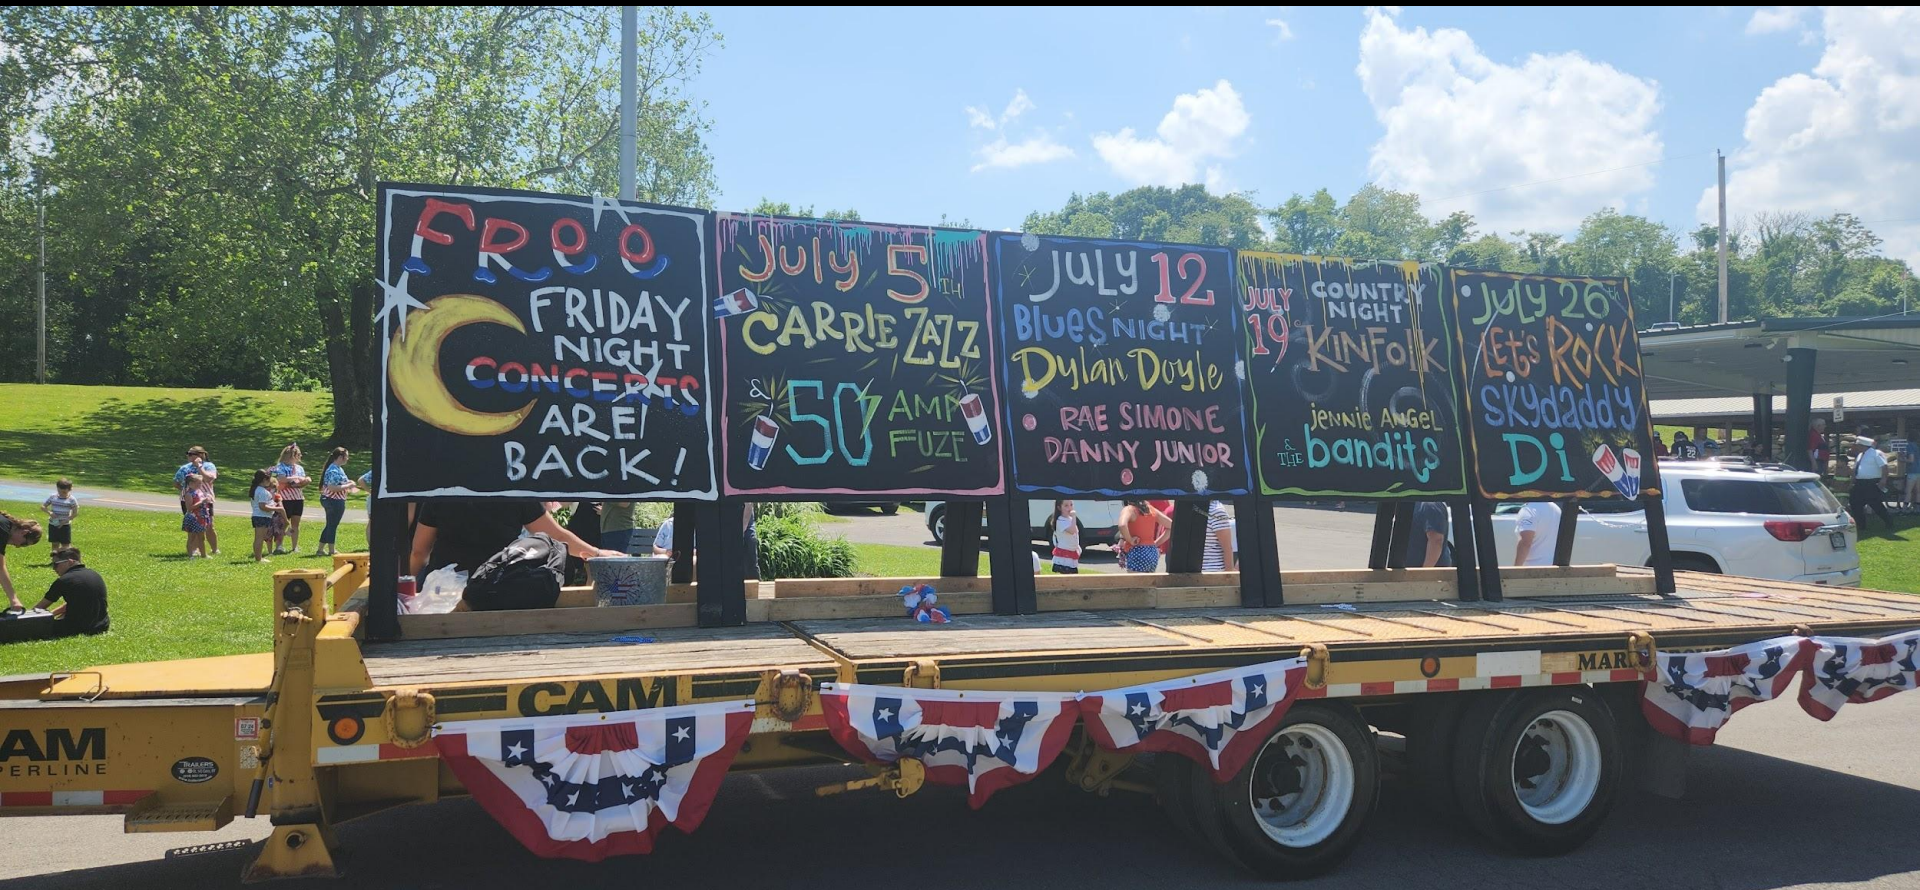 FROO
FRIDAY
NIGHT
CONCERTS
ARE!
BACK!
July 5TH
CARRIE ZAZZ
&
50 AMP
FUZE
JULY 12
Blues NIGHT
Dylan Doyle
RAE SIMONE
DANNY JUNIOR
JULY
19
COUNTRY
NIGHT
KINFOlK
jENNiE ANGEL
& THE bandits
JULY 26th
LET'S ROCK
SKydaddy
Di
CAM
MAR
AM
PERLINE
TRAILERS
22